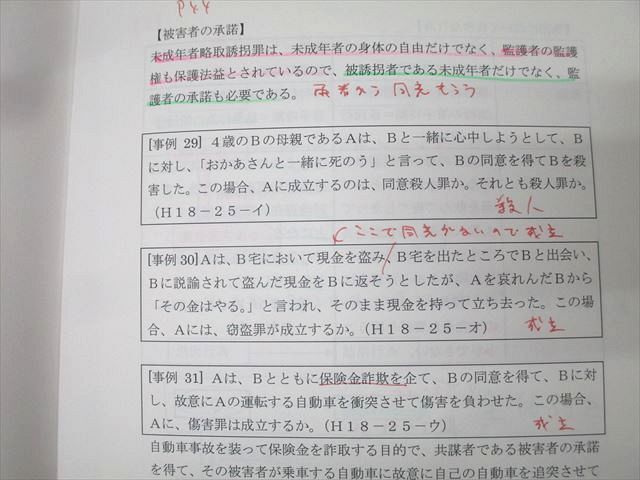 P44
【被害者の承諾】
未成年者略取誘拐罪は、未成年者の身体の自由だけでなく、監護者の監護
権も保護法益とされているので、被誘拐者である未成年者だけでなく、監
護者の承諾も必要である。 両者から同意もらう
[事例 29] 4歳のBの母親であるAは、Bと一緒に心中しようとして、B
に対し、「おかあさんと一緒に死のう」と言って、Bの同意を得てBを殺
害した。この場合、Aに成立するのは、同意殺人罪か。それとも殺人罪か。
(H18-25-イ) 殺人
ここで同意がないので成立
[事例 30] Aは、B宅において現金を盗み、B宅を出たところでBと出会い、
Bに説諭されて盗んだ現金をBに返そうとしたが、Aを哀れんだBから
「その金はやる。」と言われ、そのまま現金を持って立ち去った。この場
合、Aには、窃盗罪が成立するか。(H18-25-オ) 成立
[事例 31] Aは、Bとともに保険金詐欺を企て、Bの同意を得て、Bに対
し、故意にAの運転する自動車を衝突させて傷害を負わせた。この場合、
Aに、傷害罪は成立するか。(H18-25-ウ) 成立
自動車事故を装って保険金を詐取する目的で、共謀者である被害者の承諾
を得て、その被害者が乗車する自動車に故意に自己の自動車を追突させて